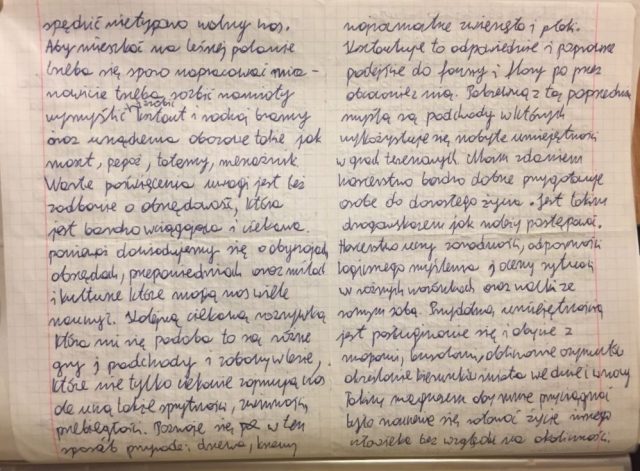 spędzić nietypowo wolny czas.
Aby mieszkać na leśnej polanie
trzeba się sporo napracować mia-
nowicie trzeba rozbić namioty
wymyślić zrobić i rodzaj bramy
oraz urządzenia obozowe takie jak
maszt, totemy,
Warte poświęcenia uwagi jest też
o obrzędowość, która
jest bardzo wciągająca i ciekawa.
ponieważ dowiadujemy się o obyczajach
obrzędach, przepowiedniach oraz
i kulturze które mogą nas wiele
nauczyć. Kolejną ciekawą rozrywką
która mi się podoba to są różne
gry i podchody i zabawy w lesie,
które nie tylko ciekawie zajmują czas
ale uczą także sprytności, zwinności,
przebiegłości. Poznaje się też w ten
sposób przyrodę: drzewa, krzewy
najrozmaitsze zwierzęta i ptaki.
Kształtuje to odpowiednie i poprawne
podejście do fauny i flory po przez
obcowanie z nią. Pokrewną z tą poprzednią
myślą są podchody w których
wykorzystuje się nabyte umiejętności
w grach terenowych. Moim zdaniem
harcerstwo bardzo dobrze przygotowuje
osobę do dorosłego życia. Jest takim
drogowskazem jak należy postępować.
Harcerstwo uczy zaradności, odporności
logicznego myślenia i oceny sytuacji
w różnych warunkach oraz walki ze
samym sobą. Przydatną umiejętnością
jest posługiwanie się i obycie z
mapami, busolami, obliczanie azymutu
określanie kierunku świata we dnie i w nocy
Takim magnesem aby mnie przyciągnąć
było nauczenie się ratować życie innego
człowieka bez względu na okoliczności.